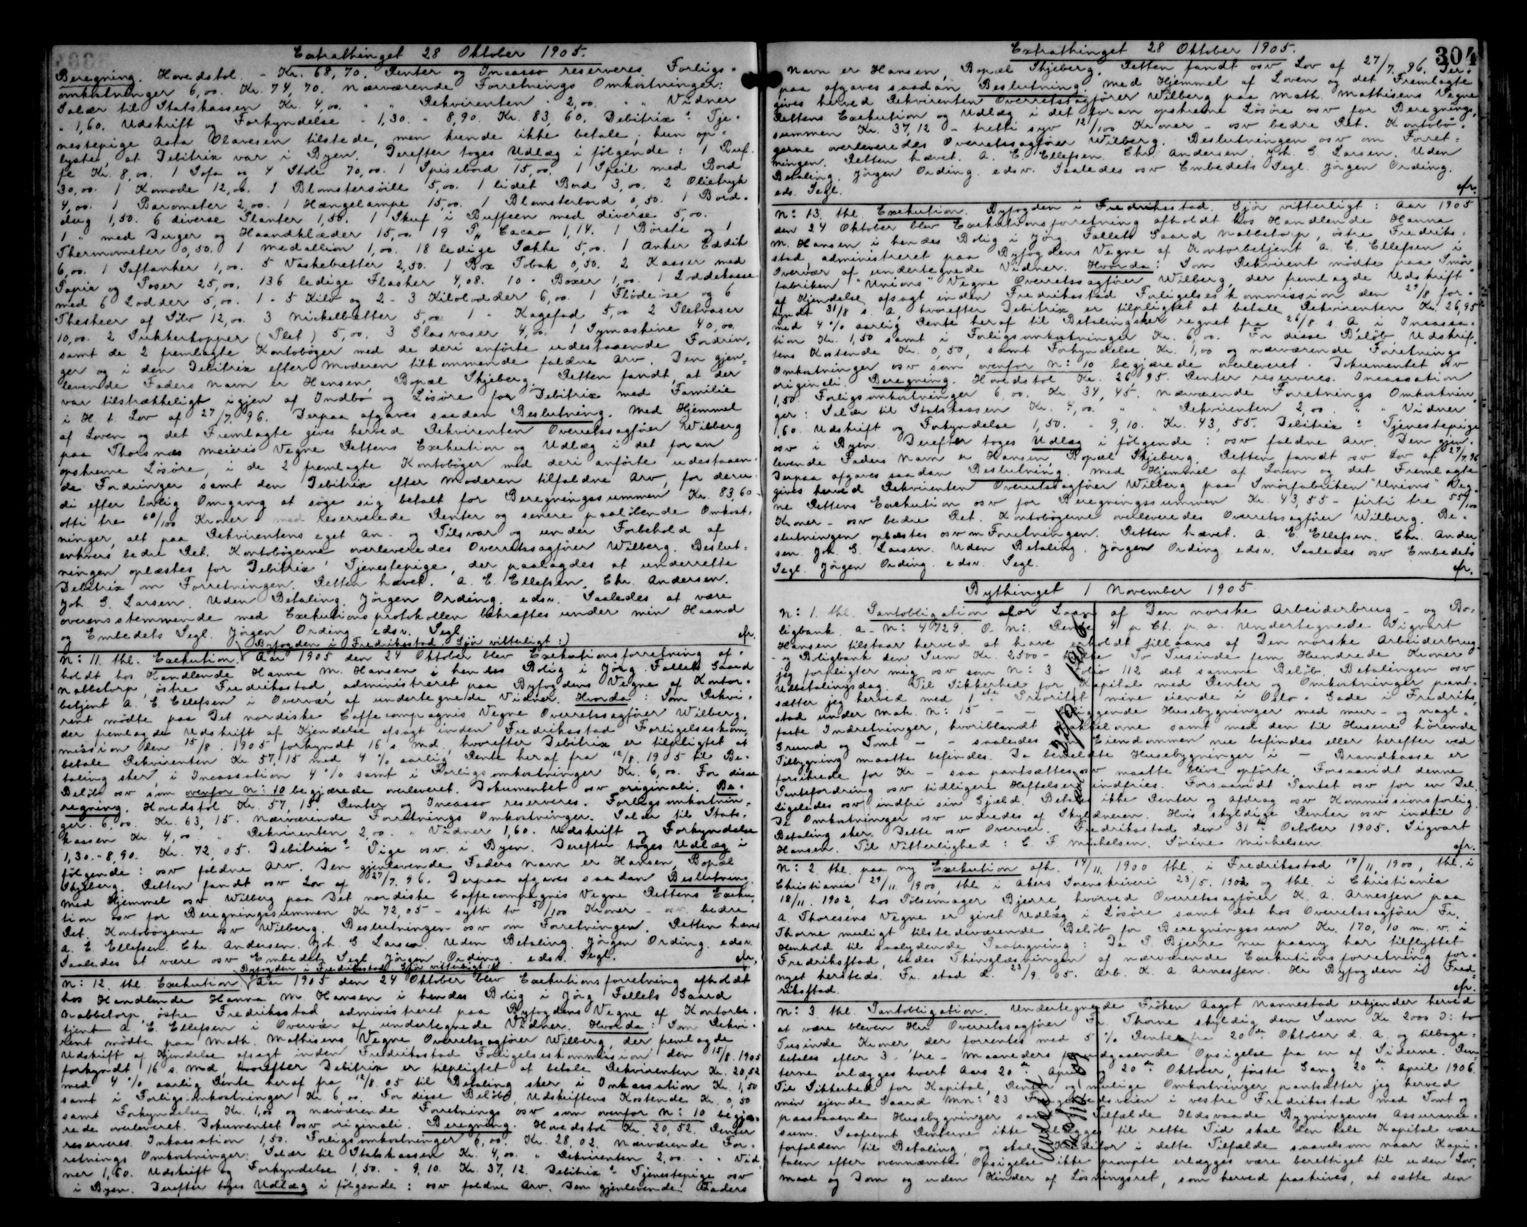 Extrathinget 28 Oktober 1905.
Beregning. Hovedstol - Kr. 68,70. Renter og Incasso reserveres. Forligs-
omkostninger 6,00. Kr. 74,70. Nærværende Forretnings Omkostninger:
Salær til Statskassen Kr. 4,00. " " Rekvirenten " 2,00. " " Vidner
" 1,60. Udskrift og Forkyndelse " 1,30. - 8,90. Kr. 83,60. Debitrix's Tje-
nestepige Asta Olavesen tilstede, men kunde ikke betale; hun op-
lyste, at Debitrix var i Byen. Derefter toges Udlæg i følgende: 1 Buf-
fe Kr. 8,00. 1 Sofa og 4 Stole 70,00. 1 Spisebord 15,00. 1 Speil med Bord
30,00. 1 Komode 12,00. 1 Blomstersöile 5,00. 1 lidet Bord 3,00. 2 Olietryk
4,00. 1 Barometer 2,00. 1 Hængelampe 15,00. 1 Blomsterbord 0,50. 1 Bord-
dug 1,50. 6 diverse Planter 1,50. 1 Skuf i Buffeen med diverse 5,00.
1 " med Duger og Haandklæder 15,00. 19 Pk Cacao 1,14. 1 Börste og 1
Thermometer 0,50. 1 medallion 1,00. 18 ledige Sække 5,00. 1 Anker Eddik
6,00. 1 Saftanker 1,00. 5 Vaskebrætter 2,50. 1 Box Tobak 0,50. 2 Kasser med
Papir og Poser 25,00. 136 ledige Flasker 4,08. 10 - Boxer 1,00. 1 Loddekasse
med 6 Lodder 5,00. 1 - 5 Kilo og 2 - 3 Kilolodder 6,00. 1 Flödeöse og 6
Theskeer af Sölv 12,00. 3 Nickelbrætter 5,00. 1 " Kagefad 5,00. 2 Pletvaser
10,00. 2 Sukkerkopper (Plet) 5,00. 3 Glasvaser 4,00. 1 Symaskine 40,00
samt de 2 fremlagte Kontobøger med de deri anförte udestaaende Fordrin-
ger og i den Debitrix efter Moderen tilkommende faldne Arv. Den gjen-
levende Faders Navn er Hansen, Bopæl Skjeberg. Retten fandt, at der
var tilstrækkeligt igjen af Indbo og Lösöre for Debitrix med Familie
i H. t. Lov af 27/7. 96. Derpaa afgaves saadan Beslutning. Med Hjemmel
af Loven og det Fremlagte gives herved Rekvirenten Overretssagförer Wilberg
paa Thorsnæs meieris Vegne Rettens Exekution og Udlæg i det foran
opskrevne Lösöre, i de 2 fremlagte Kontobøger med deri anförte udestaaen-
de Fordringer samt den Debitrix efter Moderen tilfaldne Arv, for deru-
di efter lovlig Omgang at söge sig betalt for Beregningssummen Kr. 83,60 -
otti tre 60/100 Kroner - med reserverede Renter og senere paalöbende Omkost-
ninger, alt paa Rekvirentens eget An- og Tilsvar og under Forbehold af
enhvers bedre Ret. Kontobøgerne overleveredes Overretssagförer Wilberg. Beslut-
ningen oplæstes for Debitrix' Tjenestepige, der paalagdes at underrette
Debitrix om Forretningen. Retten hævet. A. E. Ellefsen. Chr. Andersen.
Joh. G. Larsen. Uden Betaling. Jörgen Ording. edsv. Saaledes at være
overensstemmende med Exekutionsprotokollen bekræftes under min Haand
og Embedets Segl. Jörgen Ording edsv. Segl. efr.
(Byfogden i Fredrikstad Gjör vitterligt:)
N: 11. thl. Exekution. Aar 1905 den 24 Oktober blev Exekutionsforretning af-
holdt hos Handlende Hanna M. Hansen i hendes Bolig i Jörg. Fallets Gaard
Nabbetorp, östre Fredrikstad, administreret paa Byfogdens Vegne af Kontor-
betjent A. E. Ellefsen i Overvær af undertegnede Vidner. Hvorda: Som Rekvi-
rent mödte paa Det nordiske Caffecompagnis Vegne Overretssagförer Wilberg,
der fremlagde Udskrift af Kjendelse afsagt inden Fredrikstad Forligelseskom-
mission den 15/8. 1905 forkyndt 16 s. md., hvorefter Debitrix er tilpligtet at
betale Rekvirenten Kr. 57,15 med 4 % aarlig Rente heraf fra 12/8. 1905 til Be-
taling sker i Incassation 4 % samt i Forligsomkostninger Kr. 6,00. For disse
Belöb osv som ovenfor N: 10 begjærede overleveret. Dokumentet osv originali. Be-
regning. Hovedstol Kr. 57,15. Renter og Incasso reserveres. Forligsomkostnin-
ger. 6,00. Kr. 63,15. Nærværende Forretnings Omkostninger. Salær til Stats-
kassen Kr. 4,00. " Rekvirenten 2,00. " Vidner 1,60. Udskrift og Forkyndelse
1,30. - 8,90. Kr. 72,05. Debitrix's Pige osv. i Byen. Derefter toges Udlæg i
følgende: osv faldne Arv. Den gjenlevende Faders Navn er Hansen, Bopæl
Skjeberg. Retten fandt osv Lov af 27/7. 96. Derpaa afgaves saadan Beslutning.
Med Hjemmel osv Wilberg paa Det nordiske Caffecompagnis Vegne Rettens Exeku-
tion osv for Beregningssummen Kr 72,05 - sytti to 5/100 Kroner - osv bedre
Ret. Kontobøgerne osv Wilberg. Beslutningen osv om Forretningen. Retten hævet
A. E. Ellefsen. Chr. Andersen. Joh. G Larsen. Uden Betaling. Jörgen Ording. edsv.
Saaledes at være osv Embedets Segl. Jörgen Ording. edsv. Segl. efr.
(Byfogden i Fredrikstad Gjör vitterligt:)
N: 12. thl. Exekution. Aar 1905 den 24 Oktober blev Exekutionsforretning afholdt
hos Handlende Hanna M. Hansen i hendes Bolig i Jörg. Fallets Gaard
Nabbetorp östre Fredrikstad administreret paa Byfogdens Vegne af Kontorbe-
tjent A. E. Ellefsen i Overvær af undertegnede Vidner. Hvorda: Som Rekvi-
rent mödte paa Math. Mathisens Vegne Overretssagförer Wilberg, der fremlagde
Udskrift af Kjendelse afsagt inden Fredrikstad Forligelseskommission den 15/8. 1905
forkyndt 16 s. Md, hvorefter Debitrix er tilpligtet at betale Rekvirenten Kr. 20,52
med 4 % aarlig Rente heraf fra 12/8 05 til Betaling sker i Inkassation Kr. 1,50
samt i Forligsomkostninger Kr. 6,00. For disse Belöb, Udskriftens Kostende Kr. 0,50
samt Forkyndelse Kr. 1,00 og nærværende Forretnings osv som ovenfor N: 10 begjæ-
rede overleveret. Dokumentet osv originali. Beregning. Hovedstol Kr. 20,52. Renter
reserveres. Inkassation 1,50. Forligsomkostninger 6,00. Kr. 28,02. Nærværende For-
retnings Omkostninger: Salær til Statskassen Kr. 4,00. " Rekvirenten 2,00. " " Vid-
ner 1,60. Udskrift og Forkyndelse 1,50. - 9,10. Kr. 37,12. Debitrix's Tjenestepige osv
i Byen. Derefter toges Udlæg i følgende: osv faldne Arv. Den gjenlevende Faders
Extrathinget 28 Oktober 1905.
304
Navn er Hansen, Bopæl Skjeberg. Retten fandt osv Lov af 27/7. 96. Der-
paa afgaves saadan Beslutning: med Hjemmel af Loven og det Fremlagte
gives herved Rekvirenten Overretssagförer Wilberg paa Math. Mathisens Vegne
Rettens Exekution og Udlæg i det foran opskrevne Lösöre osv for Beregnings-
summen Kr. 37,12 - tretti syv 12/100 Kroner - osv bedre Ret. Kontobø-
gerne overleveredes Overretssagförer Wilberg. Beslutningen osv om Forret-
ningen. Retten hævet. A. E. Ellefsen. Chr. Andersen. Joh. G. Larsen. Uden
Betaling. Jörgen Ording. edsv. Saaledes osv Embedets Segl. Jörgen Ording.
eds. Segl. efr.
N: 13. thl. Exekution. Byfogden i Fredrikstad. Gjör vitterligt: Aar 1905
den 24 Oktober blev Exekutionsforretning afholdt hos Handlende Hanna
M. Hansen i hendes Bolig i Jörg. Fallets Gaard Nabbetorp, östre Fredrik-
stad, administreret paa Byfogdens Vegne af Kontorbetjent A. E. Ellefsen i
Overvær af undertegnede Vidner. Hvorda: Som Rekvirent mödte paa Smör-
fabriken "Unions" Vegne Overretssagförer Wilberg, der fremlagde Udskrift
af Kjendelse, afsagt inden Fredrikstad Forligelseskommission den 29/8 for-
kyndt 31/8 s. A., hvorefter Debitrix er tilpligtet at betale Rekvirenten Kr. 26,95
med 4 % aarlig Rente heraf til Betaling sker regnet fra 26/8 s A i Incassa-
tion Kr. 1,50 samt i Forligsomkostninger Kr. 6,00. For disse Belöb, Udskrif-
tens Kostende Kr. 0,50, samt Forkyndelse, Kr. 1,00 og nærværende Forretnings
Omkostninger osv som ovenfor N: 10 begjærede overleveret. Dokumentet osv
originali. Beregning. Hovedstol Kr. 26,95. Renter reserveres. Incassation
1,50. Forligsomkostninger 6,00. Kr. 34,45. Nærværende Forretnings Omkostnin-
ger: Salær til Statskassen Kr. 4,00. " " Rekvirenten 2,00. " " Vidner
1,60. Udskrift og Forkyndelse 1,50. - 9,10. Kr. 43,55. Debitrix's Tjenestepige
osv i Byen. Derefter toges Udlæg i følgende: osv faldne Arv. Den gjen-
levende Faders Navn er Hansen Bopæl Skjeberg. Retten fandt osv Lov af 27/7 96
Derpaa afgaves saadan Beslutning. Med Hjemmel af Loven og det Fremlagte
gives herved Rekvirenten Overretssagförer Wilberg paa Smörfabriken "Unions" Veg-
ne Rettens Exekution osv for Beregningssummen Kr. 43,55 - förti tre 55/100
Kroner - osv bedre Ret. Kontobøgerne overleveredes Overretssagförer Wilberg. Be-
slutningen oplæstes osv om Forretningen. Retten hævet. A. E. Ellefsen. Chr. Ander-
sen. Joh. G. Larsen. Uden Betaling. Jörgen Ording edsv. Saaledes osv Embedets
Segl. Jörgen Ording. edsv. Segl. efr.
Bythinget 1 November 1905
N: 1. thl. Pantobligation for Laan af Den norske Arbeiderbrug- og Bo-
ligbank. A. N: 4729. O. N: Rente 4 p. Ct. p. a. Undertegnede Sigvart
Hansen tilstaar herved at have holdt tillaans af Den norske Arbeiderbrug
- og Boligbank den Sum Kr. 2500 - skriver To Tusinde fem Hundrede Kroner
jeg forpligter mig osv som N: 3 Folio 112 det samme Belöb. Betalingen osv
Udbetalingsdag. Til Sikkerhed for Kapitalen med Renter og Omkostninger pant-
sætter jeg herved med 1ste Prioritet mine eiende i Oslo - Gade i Fredrik-
stad under Mat. N: 15 - beliggende Husebygninger med mur- og nagl-
faste Indretninger, hvoriblandt Kakkelovne samt med den til Husene hörende
Grund og Tomt - saaledes som Eiendommen nu befindes eller herefter ved
Tilbygning maatte befindes. De bemeldte Husebygninger er i Brandkasse er
forsikrede for Kr - saa pantsættes osv maatte blive opförte. Forsaavidt denne
Panteforskring osv tidligere Heftelser indfries. Forsaavidt Pantet osv for en Del
ligeledes osv indfri sin Gjæld. Betales ikke Renter og Afdrag osv Kommissionsforlig.
De Omkostninger osv udredes af Skyldneren. Hvis skyldige Renter osv indtil
Betaling sker. Dette osv Overvær. Fredrikstad, den 31te Oktober 1905. Sigvart
Hansen. Til Vitterlighed: E. F. Mikelsen. Sörine Michelsen. efr.
N: 2. thl. paa ny Exekution afh. 14/11. 1900 thl. i Fredrikstad 17/11. 1900, thl. i
Christiania 29/11. 1900, thl. i Akers Sorenskriveri 23/5. 1902 og thl. i Christiania
18/11. 1902, hos Tölsimager Bjerre, hvorved Overretssagförer K. A. Arnesen paa
A. Thoresens Vegne er givet Udlæg i Lösöre samt det hos Overretssagförer Fr.
Thorne muligt tilstedeværende Belöb for Beregningssum Kr. 170,10 m. v. i
Henhold til saalydende Paategning: Da P Bjerre nu paany har tilflyttet
Fredrikstad, bedes Thinglæsningen af nærværende Exekutionsforretning for-
nyet hersteds. Fr. stad d. 23/9. 05. Ærb. K. A. Arnesen. Hr Byfogden i Fred-
rikstad. efr.
N: 3. thl. Pantobligation. Undertegnede Fröken Aagot Nannestad erkjender herved
at være bleven Hr. Overretssagförer Fr. Thorne skyldig den Sum Kr. 2000 ɔ: to
Tusinde Kroner der forrentes med 5 % Rente fra 20de Oktober d. A. og tilbage-
betales efter 3 - tre - Maaneders forudgaaende Opsigelse fra en af Siderne. Ren-
terne erlægges hvert Aars 20de April og 20de Oktober, förste Gang 20de April 1906.
Til Sikkerhed for Kapital, Renter og mulige Omkostninger pantsætter jeg herved
min eiende Gaard Mn: 23 Færgestedsveien i vestre Fredrikstad med Tomt og
paastaaende Husebygninger samt i Tilfælde Ildsvaade Bygningernes Assurance-
sum. Saafremt Renterne ikke erlægges til rette Tid skal den hele Kapital være
forfalden til Betaling, og skal Kreditor i dette Tilfælde saavelsom naar Kapi-
talen efter ovennævnte Opsigelse ikke prompte erlægges være berettiget til uden Lov-
maal og Dom og uden Hinder af Lösningsret, som herved fraskrives, at sætte den
Avl. 27/9 1906.
Avlæst 23/10 09